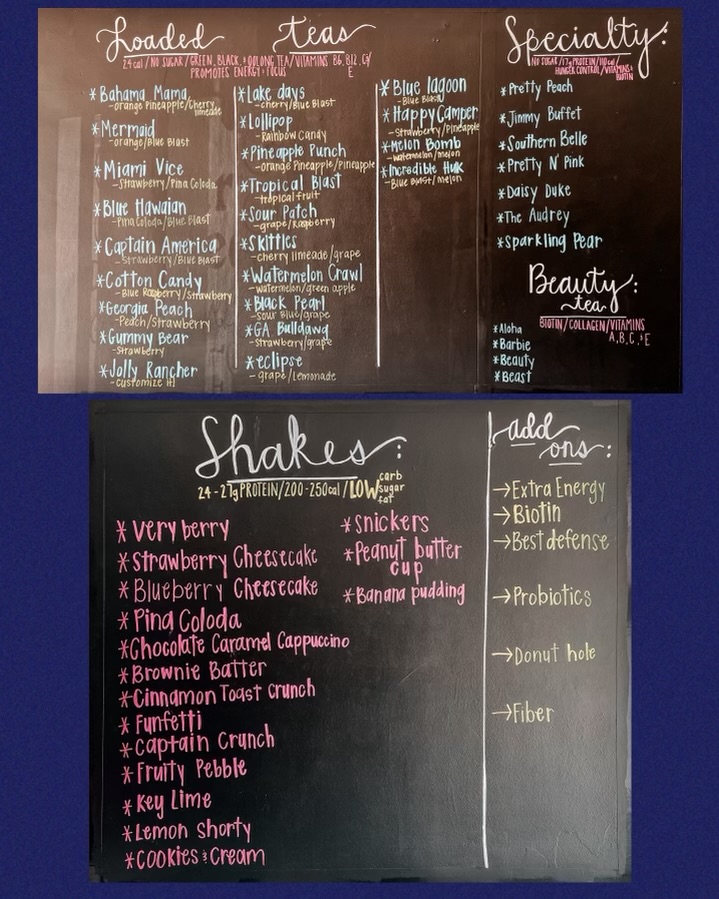 Loaded teas
24 cal / NO SUGAR / GREEN, BLACK, & OOLONG TEA / VITAMINS B6, B12, C, &
E
PROMOTES ENERGY & FOCUS
* Bahama Mama
- orange Pineapple / Cherry limeade
* Mermaid
- orange / Blue Blast
* Miami Vice
- Strawberry / Pina Coloda
* Blue Hawaiian
- Pina Coloda / Blue Blast
* Captain America
- Strawberry / Blue Blast
* Cotton Candy
- Blue Raspberry / Strawberry
* Georgia Peach
- Peach / Strawberry
* Gummy Bear
- Strawberry
* Jolly Rancher
- Customize it!
* Lake days
- cherry / Blue Blast
* Lollipop
- Rainbow Candy
* Pineapple Punch
- orange Pineapple / Pineapple
* Tropical Blast
- tropical fruit
* Sour Patch
- grape / Raspberry
* Skittles
- cherry limeade / grape
* Watermelon Crawl
- watermelon / green apple
* Black Pearl
- Sour Blue / grape
* GA Bulldawg
- Strawberry / grape
* eclipse
- grape / Lemonade
* Blue lagoon
- Blue Blast
* Happy Camper
- Strawberry / Pineapple
* Melon Bomb
- watermelon / melon
* Incredible Hulk
- Blue Blast / melon
Specialty:
NO SUGAR / 17g PROTEIN / 110 cal /
HUNGER CONTROL / VITAMINS &
BIOTIN
* Pretty Peach
* Jimmy Buffet
* Southern Belle
* Pretty N' Pink
* Daisy Duke
* The Audrey
* Sparkling Pear
Beauty
tea:
BIOTIN / COLLAGEN / VITAMINS
A, B, C, & E
* Aloha
* Barbie
* Beauty
* Beast
Shakes:
24-27g PROTEIN / 200-250cal / LOW carb
sugar
fat
* very berry
* Strawberry Cheesecake
* Blueberry Cheesecake
* Pina Coloda
* Chocolate Caramel Cappuccino
* Brownie Batter
* Cinnamon Toast Crunch
* Funfetti
* Captain Crunch
* Fruity Pebble
* Key Lime
* Lemon Shorty
* COOKIES & Cream
* Snickers
* Peanut butter
cup
* Banana pudding
add
ons:
→ Extra Energy
→ Biotin
→ Best defense
→ Probiotics
→ Donut hole
→ Fiber